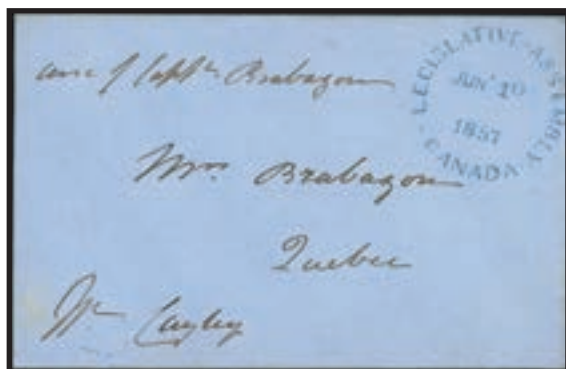 care of Captn Brabazon
LEGISLATIVE-ASSEMBLY
JUN 10
1857
CANADA
Mrs Brabazon
Quebec
Wm Cayley